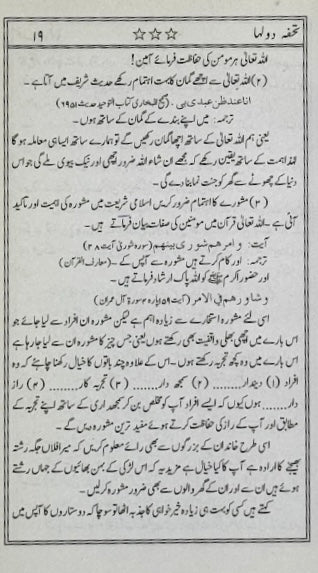 تحفہ دولہا ☆☆☆ ۱۹
اللہ تعالیٰ ہر مومن کی حفاظت فرمائے آمین!
(۲) اللہ تعالیٰ سے اچھے گمان کا بہت اہتمام رکھے حدیث شریف میں آتا ہے۔
انا عند ظن عبدی بی۔ (صحیح البخاری کتاب التوحید حدیث ۶۹۵۱)
ترجمہ: میں اپنے بندے کے گمان کے ساتھ ہوں۔
یعنی ہم اللہ تعالیٰ کے ساتھ اچھا گمان رکھیں گے تو ہمارے ساتھ ایسا ہی معاملہ ہو گا
لہٰذا ہمت کے ساتھ یقین رکھے کہ مجھے ان شاء اللہ ضرور اچھی اور نیک بیوی ملے گی جو اس
دنیا کے چھوٹے سے گھر کو جنت نما بنا دے گی۔
(۳) مشورے کا اہتمام ضرور کریں اسلامی شریعت میں مشورہ کی اہمیت اور تاکید
آئی ہے۔ اللہ تعالیٰ قرآن میں مومنین کی صفات بیان فرماتے ہیں۔
آیت: وامرھم شوریٰ بینھم (سورہ شوریٰ آیت ۳۸)
ترجمہ: اور کام کرتے ہیں مشورہ سے آپس کے۔ (معارف القرآن)
اور حضور اکرم ﷺ کو اللہ پاک ارشاد فرماتے ہیں۔
وشاورھم فی الامر (آیت ۱۵۹ پارہ ۴ سورۃ آل عمران)
اسی لئے مشورہ استخارے سے زیادہ اہم ہے لیکن مشورہ ان افراد سے لیا جائے جو
اس بارے میں اچھی بھلی واقفیت بھی رکھتے ہوں یعنی جس چیز کا مشورہ ان سے لیا جا رہا ہے
اس بارے میں وہ کچھ تجربہ رکھتے ہوں۔ اس کے علاوہ چند باتوں کا خیال رکھنا چاہئے کہ وہ
افراد (۱) دیندار........ (۲) سمجھ دار........ (۳) تجربہ کار........ (۴) راز
دار........ ہوں کیوں کہ ایسے افراد آپ کو مخلص بن کر سمجھداری کے ساتھ اپنے تجربہ کے
مطابق اور آپ کے راز کی حفاظت کرتے ہوئے مفید ترین مشورہ دیں گے۔
اسی طرح خاندان کے بزرگوں سے بھی رائے معلوم کریں کہ میرا فلاں جگہ رشتہ
بھیجنے کا ارادہ ہے آپ کا کیا خیال ہے مزید یہ کہ اس لڑکی کے بہن بھائیوں کے جہاں رشتے
ہوئے ہیں ان سے اور ان کے گھر والوں سے بھی ضرور مشورہ کر لیں۔
کہتے ہیں کسی کو بہت ہی زیادہ خیر خواہی کا جذبہ اٹھا تو سوچا کہ دو ستاروں کا آپس میں